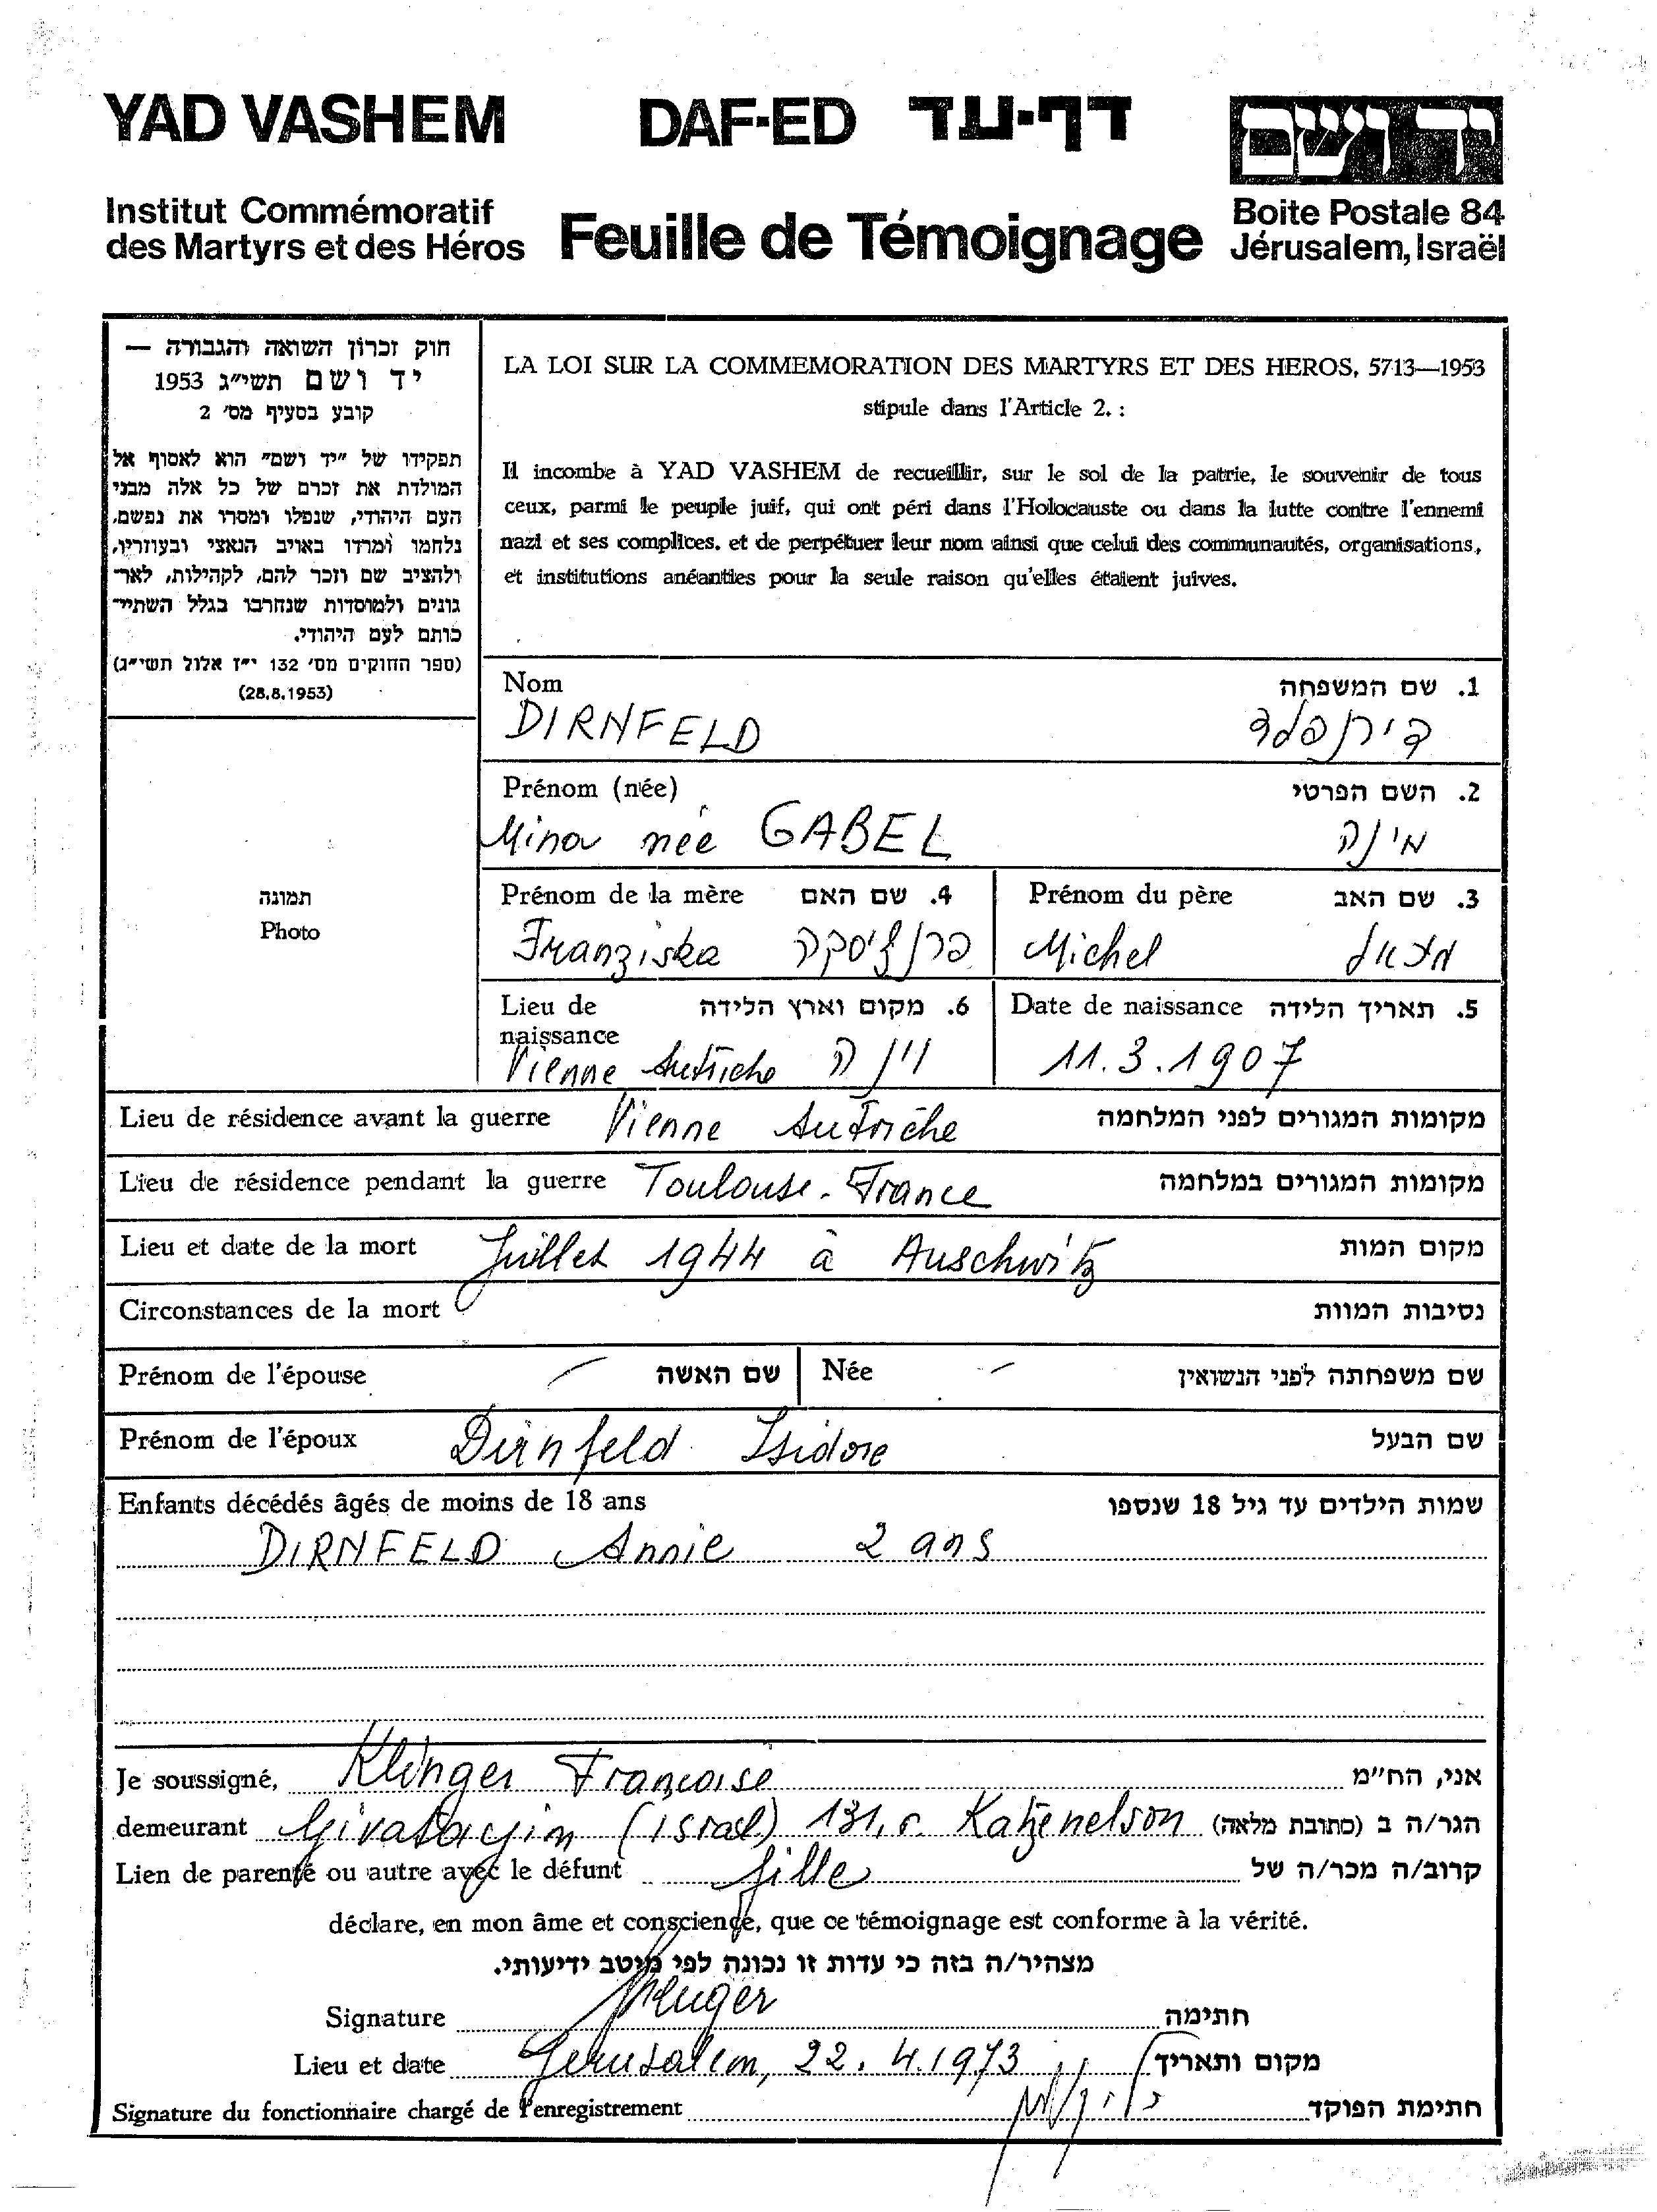 YAD VASHEM DAF-ED דף-עד יד ושם
Institut Commémoratif
des Martyrs et des Héros
Feuille de Témoignage
Boite Postale 84
Jérusalem, Israël
חוק זכרון השואה והגבורה —
יד ושם תשי״ג 1953
קובע בסעיף מס׳ 2
תפקידו של ״יד ושם״ הוא לאסוף אל
המולדת את זכרם של כל אלה מבני
העם היהודי, שנפלו ומסרו את נפשם,
נלחמו ומרדו באויב הנאצי ובעוזריו,
ולהציב שם וזכר להם, לקהילות, לאר־
גונים ולמוסדות שנחרבו בגלל השתיי־
כותם לעם היהודי.
(ספר החוקים מס׳ 132 י״ז אלול תשי״ג)
(28.8.1953)
LA LOI SUR LA COMMEMORATION DES MARTYRS ET DES HEROS, 5713—1953
stipule dans l'Article 2. :
Il incombe à YAD VASHEM de recueillir, sur le sol de la patrie, le souvenir de tous
ceux, parmi le peuple juif, qui ont péri dans l'Holocauste ou dans la lutte contre l'ennemi
nazi et ses complices. et de perpétuer leur nom ainsi que celui des communautés, organisations,
et institutions anéanties pour la seule raison qu'elles étaient juives.
תמונה
Photo
Nom 1. שם המשפחה
DIRNFELD דירנפלד
Prénom (née) 2. השם הפרטי
Mina née GABEL מינה
Prénom de la mère 4. שם האם Prénom du père 3. שם האב
Franziska פרנציסקה Michel מיכאל
Lieu de naissance 6. מקום וארץ הלידה Date de naissance 5. תאריך הלידה
Vienne Autriche וינה 11.3.1907
Lieu de résidence avant la guerre Vienne Autriche מקומות המגורים לפני המלחמה
Lieu de résidence pendant la guerre Toulouse - France מקומות המגורים במלחמה
Lieu et date de la mort Juillet 1944 à Auschwitz מקום המות
Circonstances de la mort נסיבות המוות
Prénom de l'épouse — שם האשה Née — שם משפחתה לפני הנשואין
Prénom de l'époux Dirnfeld Isidore שם הבעל
Enfants décédés âgés de moins de 18 ans שמות הילדים עד גיל 18 שנספו
DIRNFELD Annie 2 ans
Je soussigné, Klinger Françoise אני, הח״מ
demeurant Givatayim (israel) 131, r. Katzenelson הגר/ה ב (כתובת מלאה)
Lien de parenté ou autre avec le défunt fille קרוב/ה מכר/ה של
déclare, en mon âme et conscience, que ce témoignage est conforme à la vérité.
מצהיר/ה בזה כי עדות זו נכונה לפי מיטב ידיעותי.
Signature חתימה
Lieu et date Jerusalem, 22.4.1973 מקום ותאריך
Signature du fonctionnaire chargé de l'enregistrement חתימת הפוקד